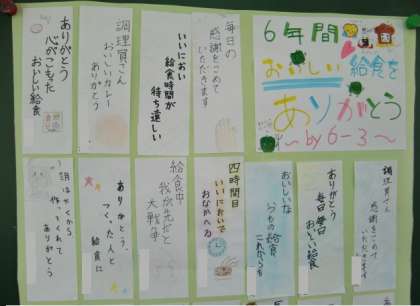 6年間
おいしい給食を
ありがとう
～by6-3～
毎日の
感謝をこめて
いただきます
いいにおい
給食時間が
待ち遠しい
調理員さん
おいしいカレー
ありがとう
ありがとう
心がこもった
おいしい給食
調理員さん
感謝をこめて
いただきます
ありがとう
毎日毎日
おいしい給食
おいしいな
いつもの給食
これからも
四時間目
いいにおいで
おなかへる
給食中
我が先ぞと
大戦争
ありがとう
つくった人と
給食に
朝はやくから
作ってくれて
ありがとう